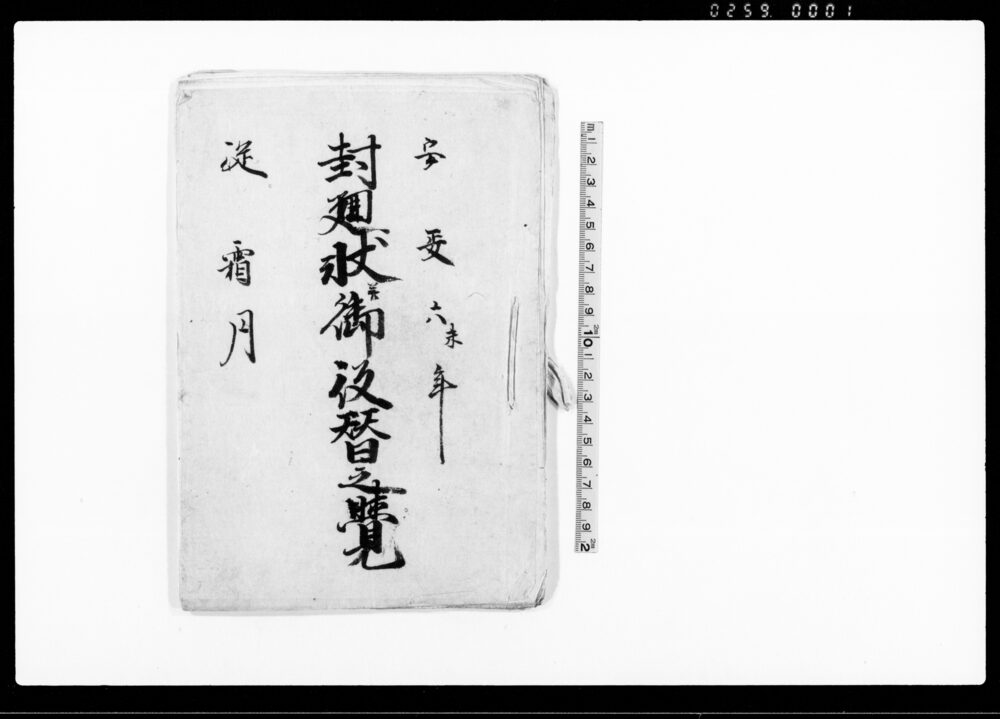 0259 0001
安政六未年
封廻状并御役替之覺
従霜月
1 2 3 4 5 6 7 8 9 10 1 2 3 4 5 6 7 8 9 2